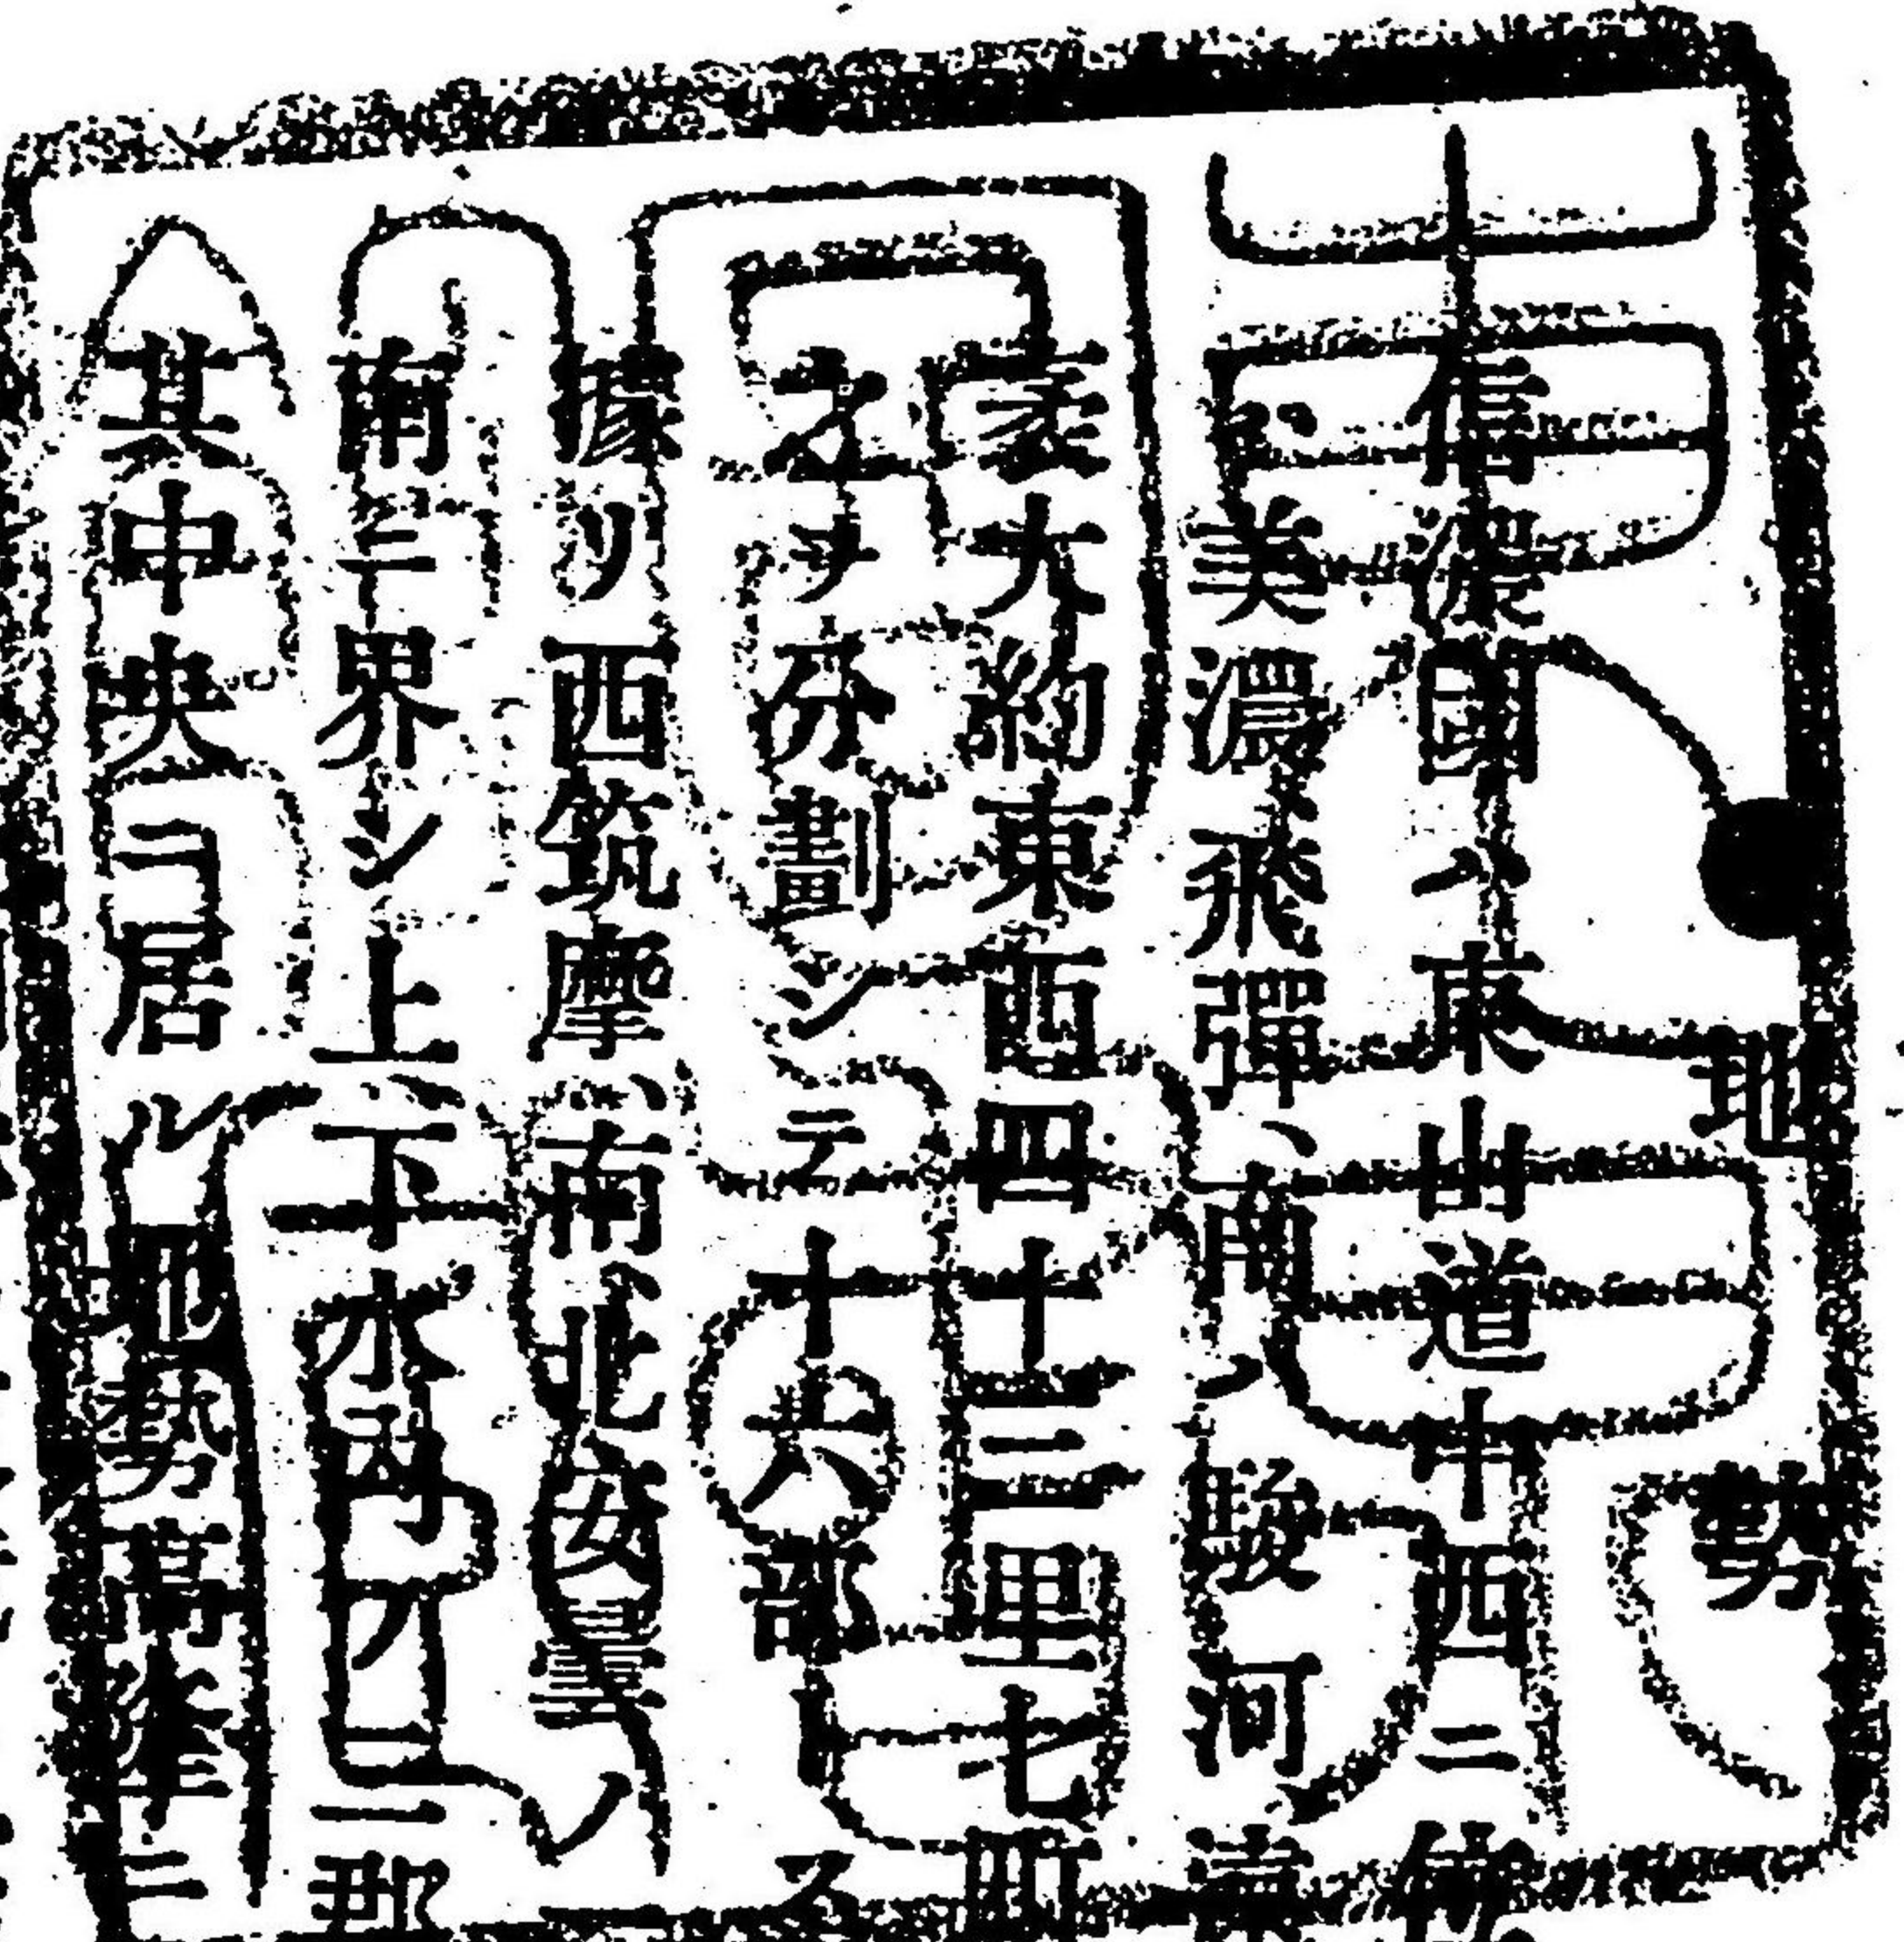 地勢
信濃國ハ東山道中西ニ
美濃飛彈、南ハ駿河遠
袤大約東西四十三里七町
之ヲ分劃シテ十六部
據リ西筑摩、南、北安曇ノ
南ニ界シ上、下水內ノ二郡
其中央ニ居ル地勢高隆ニ